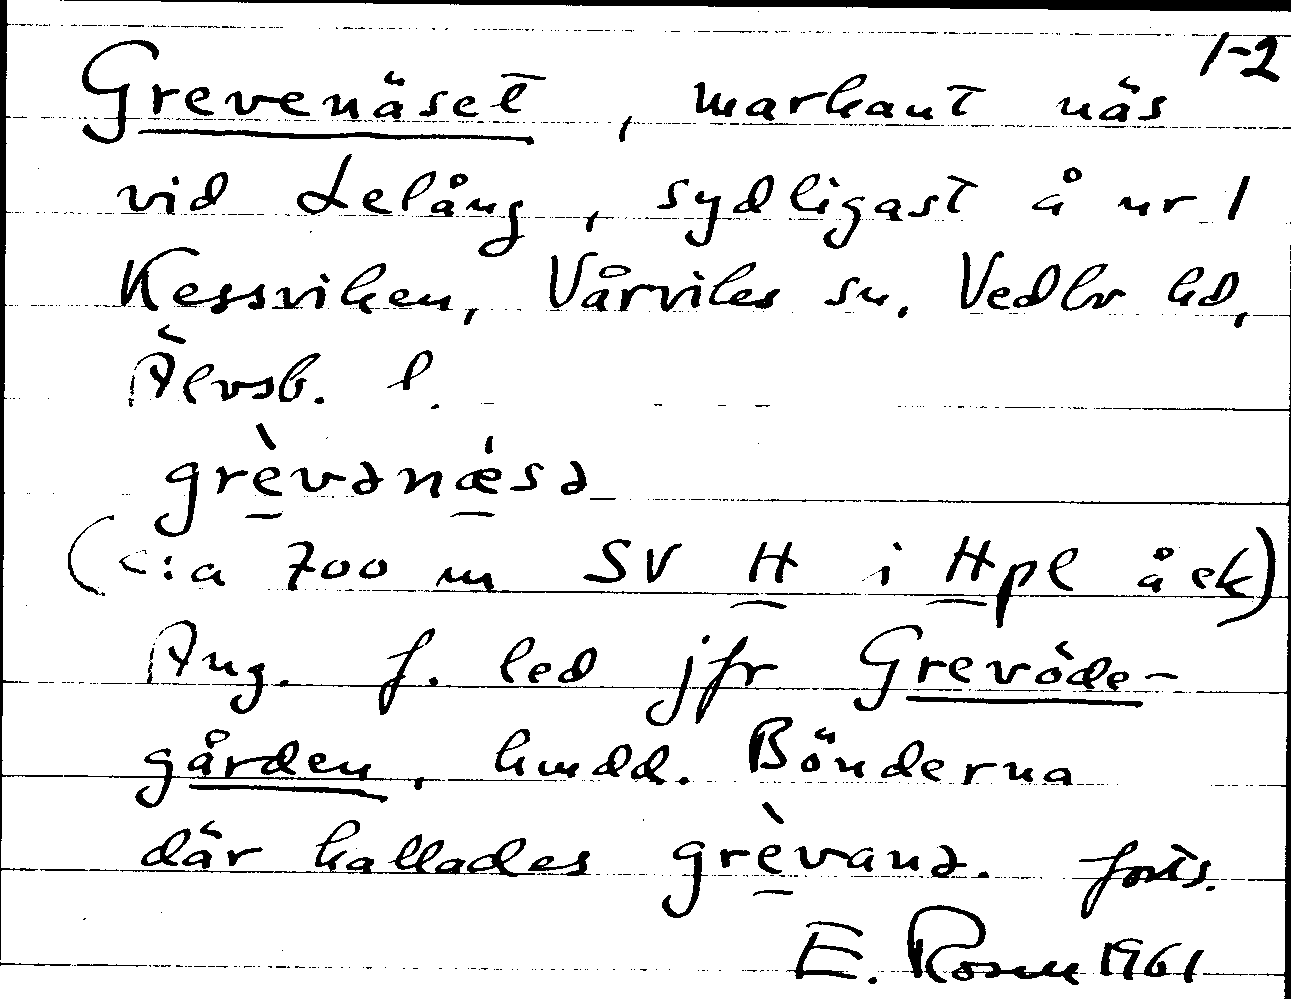 1-2
Grevenäset, markant näs
vid Lelång, sydligast å nr 1
Kessviken, Vårviks sn. Vedbo hd,
Älvsb. l.
grèvənǽsə
(c:a 700 m SV H i Hpl å ek)
Ang. f. led jfr Grevöde-
gården, hmdd. Bönderna
där kallades grèvanə. forts.
E. Rosén 1961